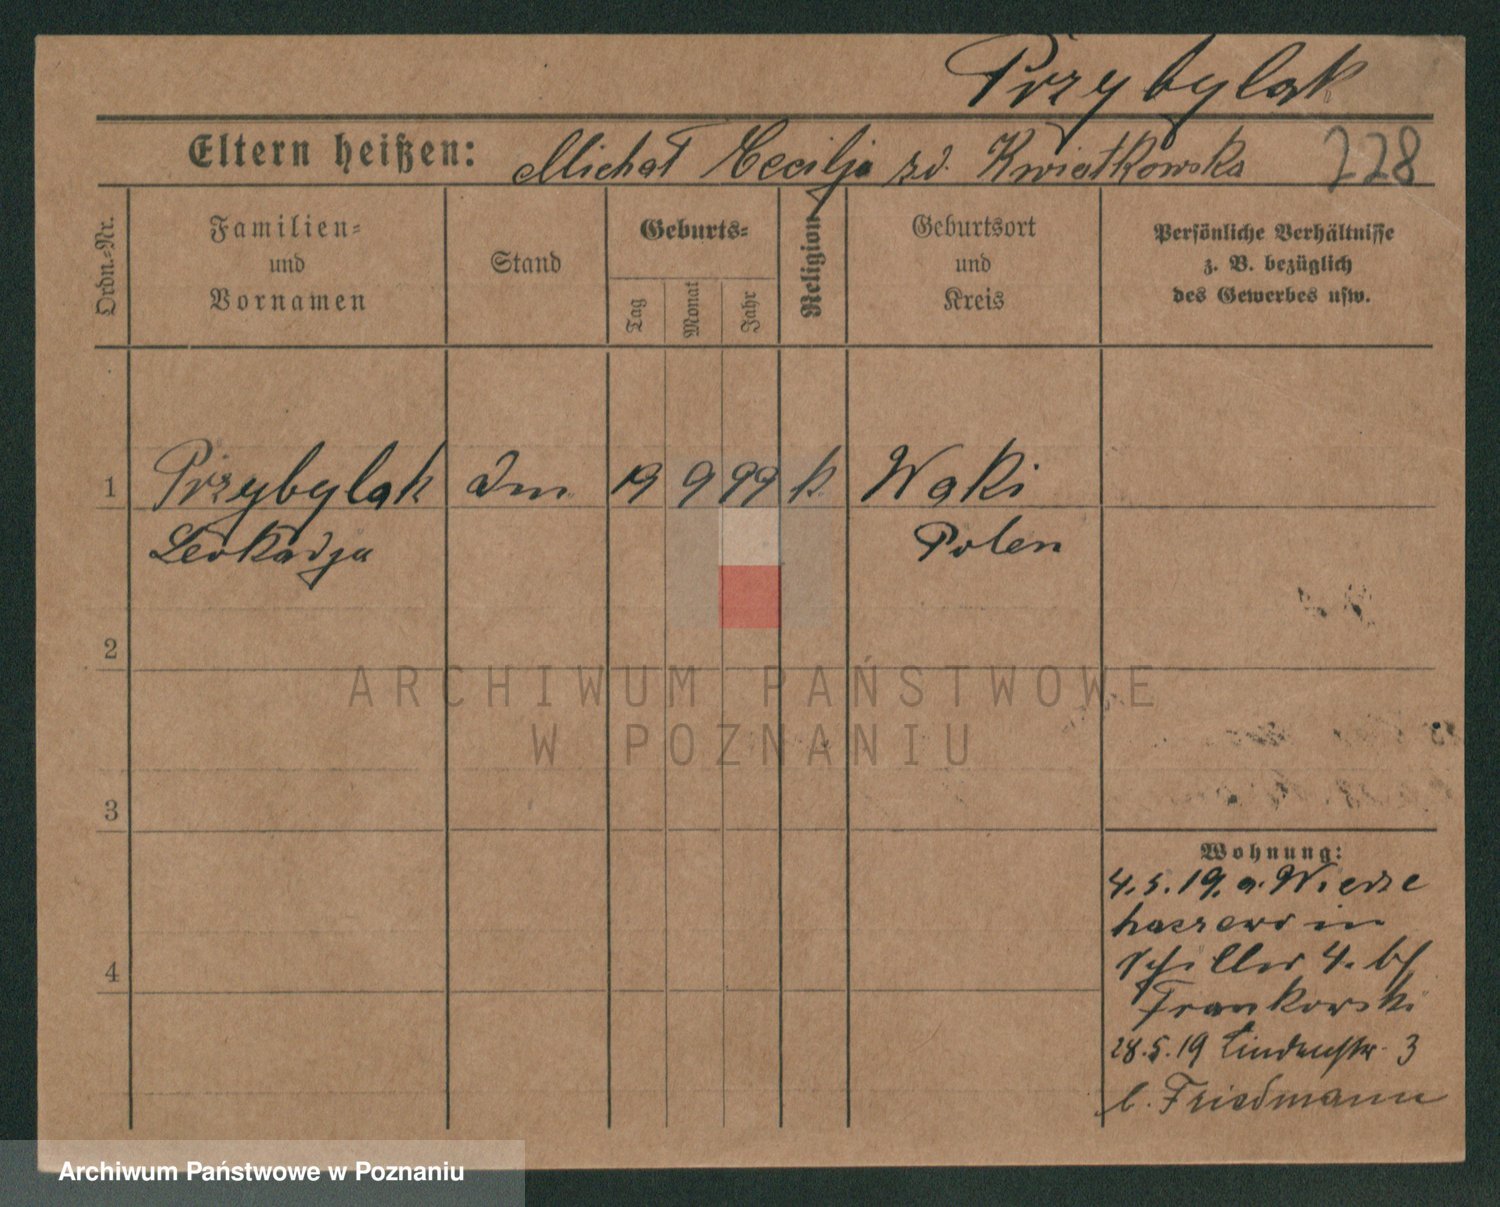 Przybylak
Eltern heißen: Michał Cecilja zd. Kwiatkowska 228
Ordn.-Nr.
Familien-
und
Vornamen
Stand
Geburts-
Tag
Monat
Jahr
Religion
Geburtsort
und
Kreis
Persönliche Verhältnisse
z. B. bezüglich
des Gewerbes usw.
1 Przybylak 19 9 99 k. Woki
Leokadja Polen
2
ARCHIWUM PAŃSTWOWE
W POZNANIU
3
Wohnung:
4.5.19. a.
in
4
Schiller 4. bf
Frankowski
28.5.19 Lindenstr. 3
b. Friedmann
Archiwum Państwowe w Poznaniu